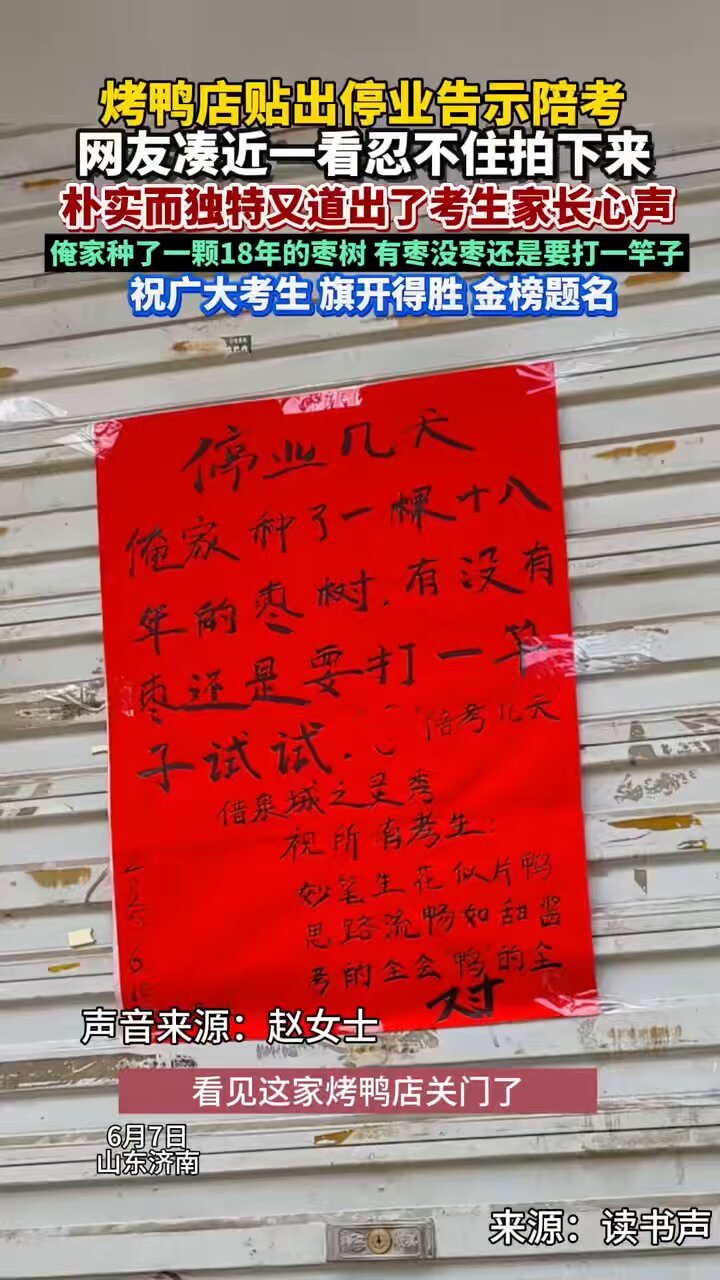 烤鸭店贴出停业告示陪考
网友凑近一看忍不住拍下来
朴实而独特又道出了考生家长心声
俺家种了一颗18年的枣树 有枣没枣还是要打一竿子
祝广大考生 旗开得胜 金榜题名
停业几天
俺家种了一棵十八
年的枣树.有没有
枣还是要打一竿
子试试.
陪考几天
借泉城之灵秀
祝所有考生:
妙笔生花似片鸭
思路流畅如甜酱
考的全会"鸭"的全
对
声音来源：赵女士
看见这家烤鸭店关门了
6月7日
山东济南
来源：读书声